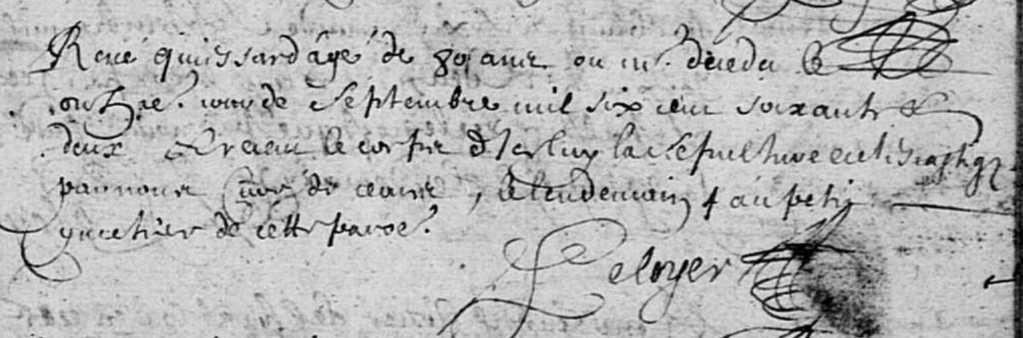 René quissard âgé de 80 ans ou en. deceda le
onze. jour de Septembre mil six cens soixante &
deux & receu le corps d'Iceluy la sepulture eclesiastiq
par nous Curé de ceans, le lendemain au petit
cymetiere de cette paroe.
Leloyer